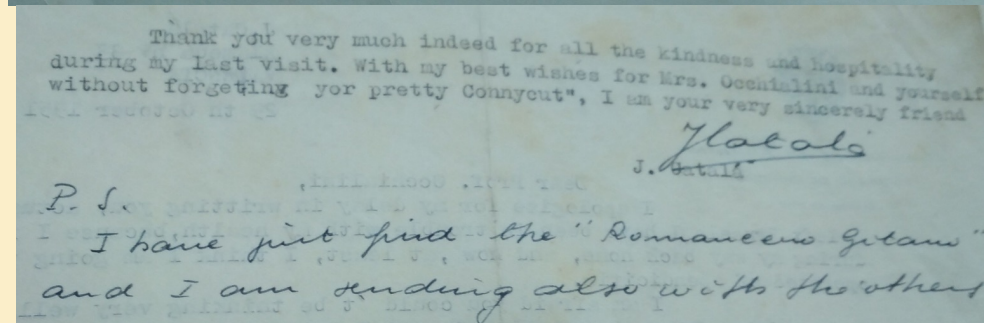 Thank you very much indeed for all the kindness and hospitality
during my last visit. With my best wishes for Mrs. Occhialini and yourself
without forgeting yor pretty Connycut", I am your very sincerely friend
J. Catalá
P. S.
I have just find the "Romancero Gitano"
and I am sending also with the others